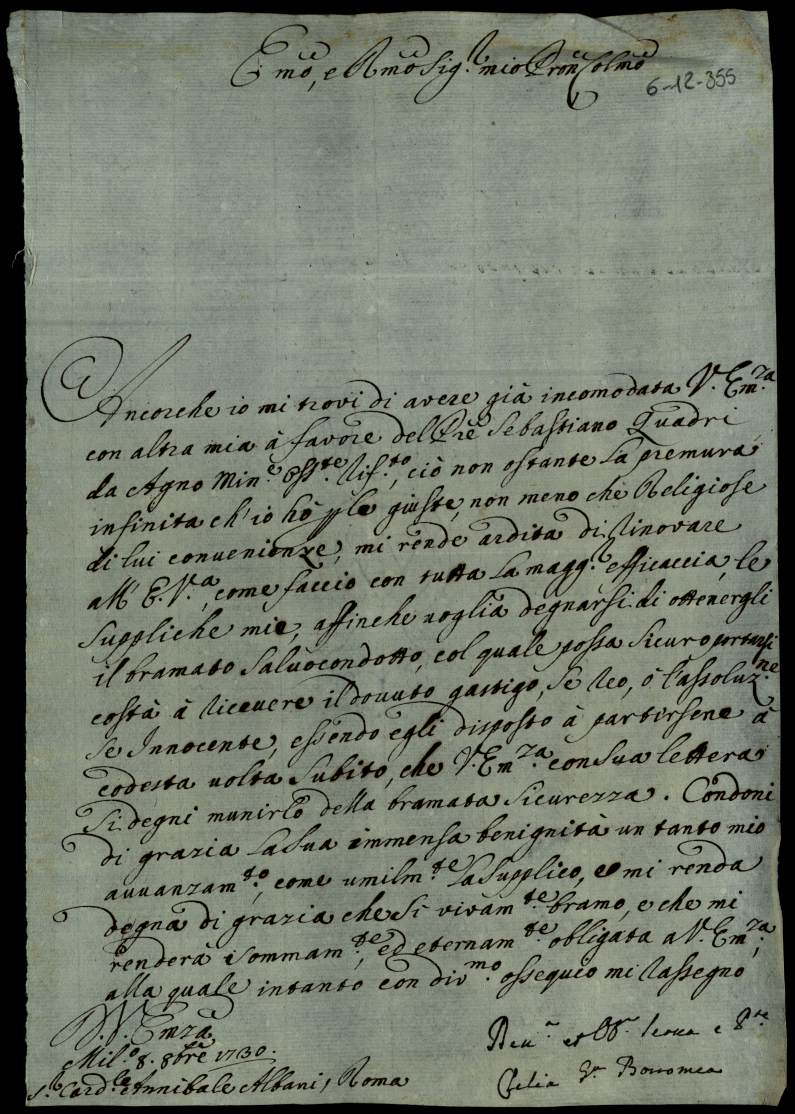 Emo, e Rmo Sig.r mio Pron Colmo
6-12-355
Ancorche io mi trovi di avere già incomodata V. Em.za
con altra mia à favore del Pre Sebastiano Quadri
da Agno Min.e Oss.te Rif.to, ciò non ostante la premura
infinita ch'io hò p le giuste, non meno che Religiose
di lui convenienze, mi rende ardita di rinovare
all' E.V.a, come faccio con tutta la magg.r efficaccia, le
suppliche mie, affinche voglia degnarsi di ottenergli
il bramato salvocondotto, col quale possa sicuro portarsi
costà à ricevere il dovuto gastigo, se reo, ò l'assoluz.ne
se Innocente, essendo egli disposto à partirsene à
codesta volta subito, che V. Em.za con sua lettera
si degni munirlo della bramata sicurezza. Condoni
di grazia la sua immensa benignità un tanto mio
avvanzam.to, come umilm.te la supplico, e mi renda
degna di grazia che sì vivam.te bramo, e che mi
renderà sommam.te, ed eternam.te obligata a V. Em.za,
alla quale intanto con div.mo ossequio mi rassegno
D. V. Emza
Mil.o 8. 8bre 1730.
S.r Card.le Annibale Albani, Roma
Clelia Borromea